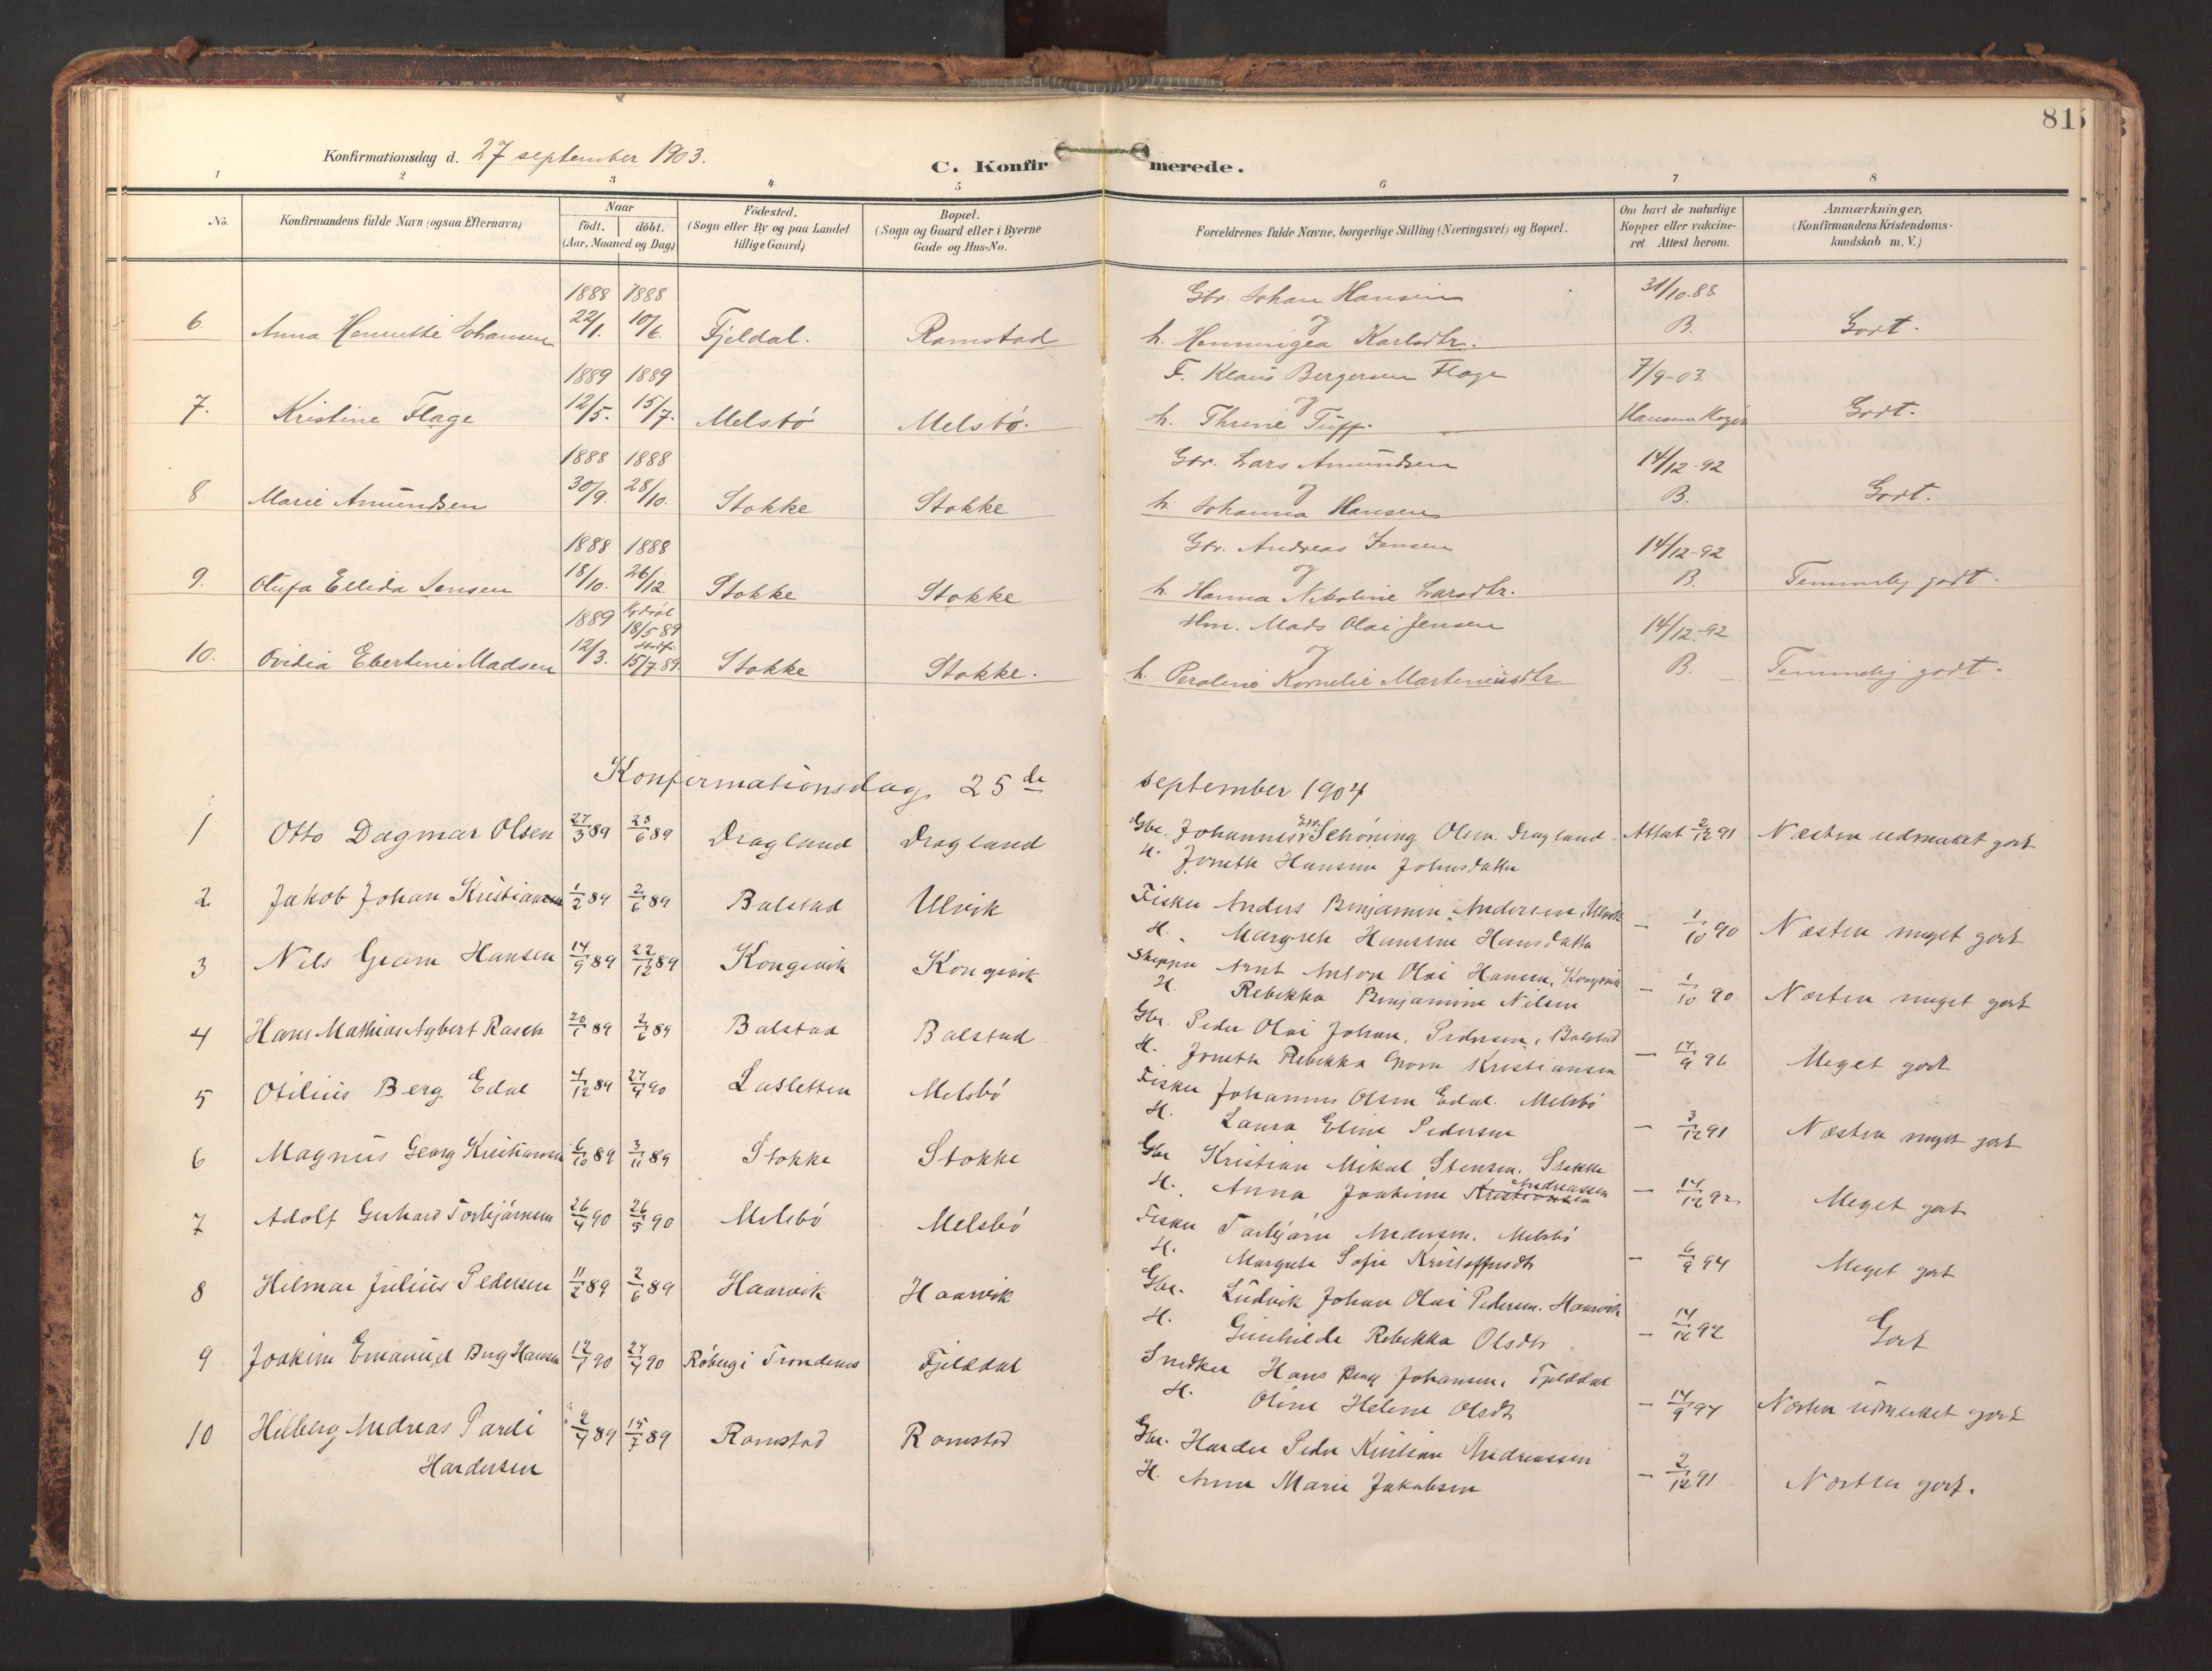 81
Konfirmationsdag d. 27 september 1903.
C. Konfirmerede.
1 2 3 4 5 6 7 8
No. Konfirmandens fulde Navn (ogsaa Efternavn) Naar født. døbt. (Aar, Maaned og Dag) Födested. (Sogn eller By og paa Landet tillige Gaard) Bopæl. (Sogn og Gaard eller i Byerne Gade og Hus-No. Forældrenes fulde Navne, borgerlige Stilling (Næringsvei) og Bopæl. Om havt de naturlige Kopper eller vakcineret. Attest herom. Anmærkninger, (Konfirmandens Kristendomskundskab m. V.)
1888 1888 Gbr. Johan Hansen 31/10.88
6. Anna Henriette Johansen 22/1. 10/6. Fjeldal. Ramstad og h. Henningea Karlsdtr. B. Godt.
1889 1889 F. Klaus Bergersen Flage 7/9-03.
7. Kristine Flage 12/5. 15/7. Melsbö Melsbö. og h. Thrine Tuff. Hansen Godt.
1888 1888 Gbr. Lars Amundsen 14/12-92
8 Marie Amundsen 30/9. 28/10. Stokke Stokke og h. Johanna Hansen B. Godt.
1888 1888 Gbr. Andreas Jensen 14/12-92
9. Olufa Ellida Jensen 18/10. 26/12 Stokke Stokke og h. Hanna Nikoline Larsdtr. B. Temmelig godt.
1889 18/5 89 Hm. Mads Olai Jensen 14/12-92
10. Ovidia Ebertine Madsen 12/3. 15/7 89 Stokke Stokke. og h. Peroline Kornelie Martiniusdtr B. Temmelig godt.
Konfirmationsdag 25de september 1904
1 Otto Dagmar Olsen 27/3 89 23/6 89 Dragland Dragland Gbr. Johannes Schöning Olsen Dragland Attest 2/12 91 Næsten udmerket godt
H. Jonette Hansine Johnsdatter
2 Jakob Johan Kristiansen 1/2 89 2/6 89 Balstad Ulvik Fisker Anders Benjamin Andersen, Ulvik - 1/10 90 Næsten meget godt
H. Margrete Hansine Hansdatter
3 Nils Georn Hansen 14/9 89 22/12 89 Kongsvik Kongsvik Skipper Arnt Anton Olai Hansen, Kongsvik - 1/10 90 Næsten meget godt
H. Rebekka Benjamine Nilsen
4 Hans Mathias Agbert Rasch 20/1 89 2/6 89 Balstad Balstad Gbr. Peder Olai Johan Pedersen, Balstad - 17/9 96 Meget godt
H. Jonette Rebekka Kristiansen
5 Otilius Berg Edal 4/12 89 27/4 90 Lasletten Melsbö Fisker Johannes Olsen Edal. Melsbö - 3/12 91 Næsten meget godt
H. Laura Eline Pedersen
6 Magnus Georg Kristiansen 6/10 89 3/11 89 Stokke Stokke Gbr Kristian Mikal Stensen. Stokke - 14/12 92 Meget godt
H. Anna Joakime Kristiansen Andreassen
7 Adolf Gerhard Torbjörnsen 26/4 90 26/5 90 Melsbö Melsbö Fisker Torbjörn Andersen. Melsbö - 6/9 94 Meget godt
H. Margrete Sofie Kristoffersdtr
8 Hilmar Julius Pedersen 11/2 89 2/6 89 Haarvik Haarvik Gbr. Ludvik Johan Olai Pedersen. Haarvik - 14/12 92 Godt
H. Gunhilde Rebekka Olsdtr
9 Joakim Emanuel Berg Hansen 12/1 90 27/4 90 Röberg i Trondenes Fjelddal Snedker Hans Berg Johansen. Fjelddal - 14/9 94 Næsten udmerket godt
H. Oline Helene Olsdtr
10 Hilberg Andreas Pareli 2/4 89 15/7 89 Ramstad Ramstad Gbr. Harder Peder Kristian Andreassen - 2/12 91 Næsten godt.
Hardersen H. Anne Marie Jakobsen